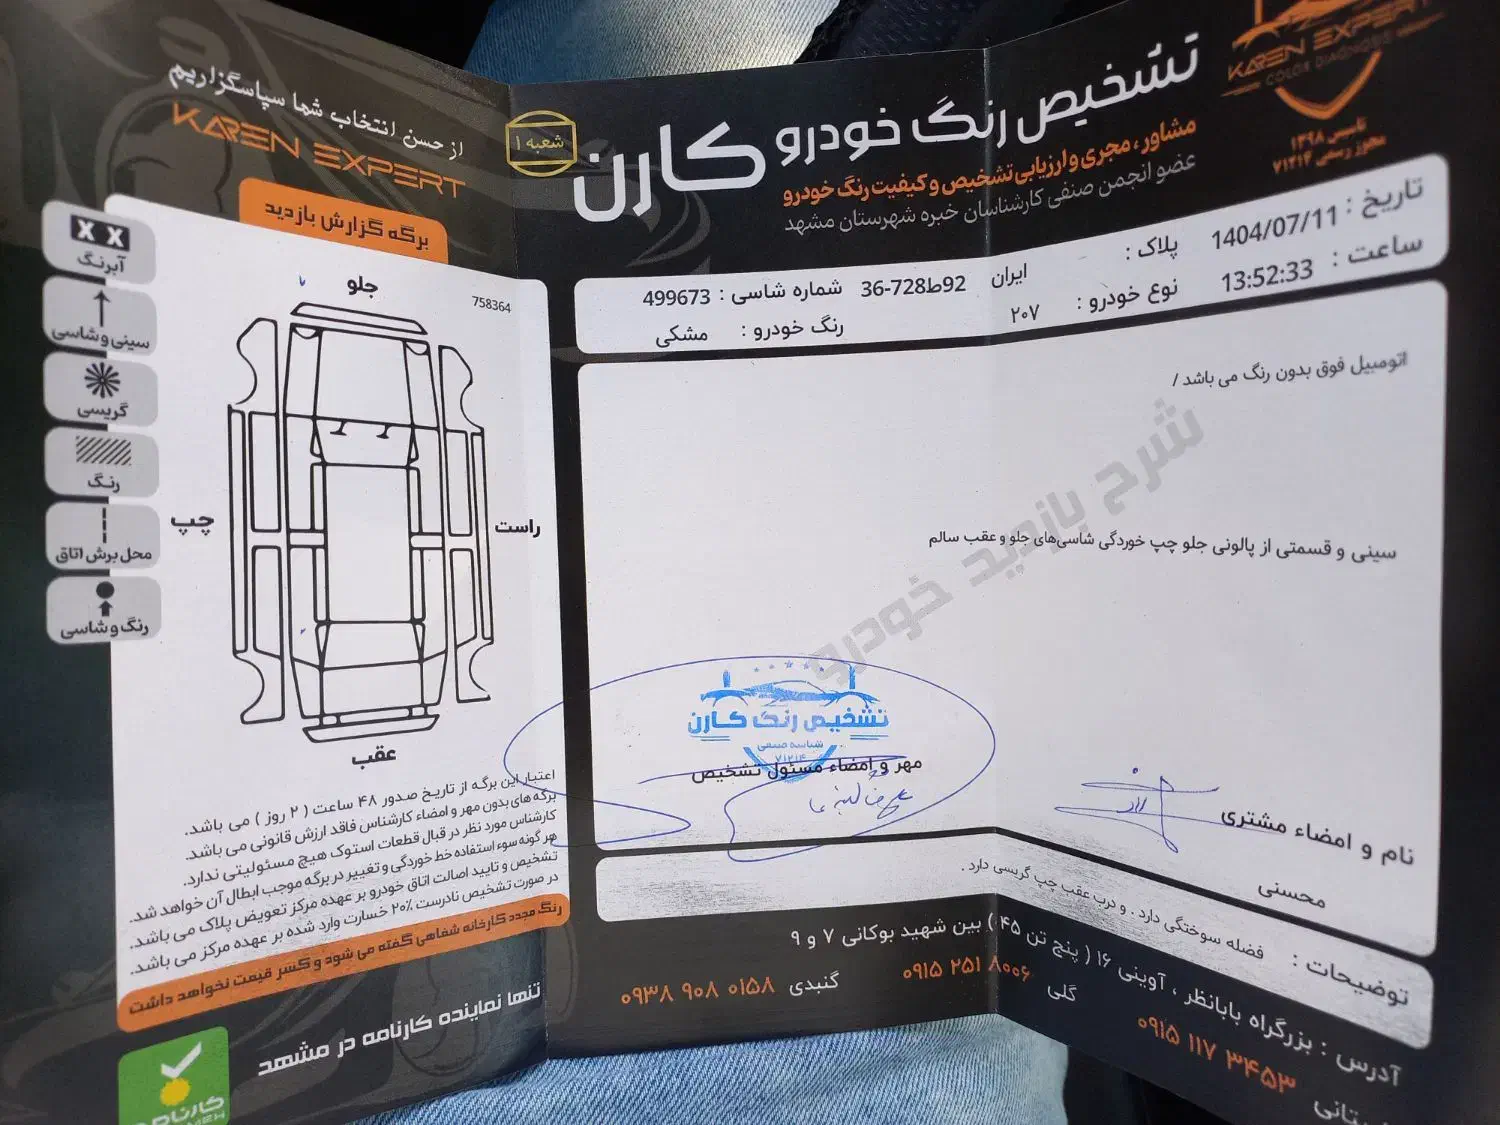 از حسن انتخاب شما سپاسگزاریم
KAREN EXPERT
شعبه ۱
تشخیص رنگ خودرو کارن
مشاور، مجری و ارزیابی تشخیص و کیفیت رنگ خودرو
عضو انجمن صنفی کارشناسان خبره شهرستان مشهد
KAREN EXPERT
COLOR DIAGNOSIS
تاسیس ۱۳۹۸
مجوز رسمی ۷۱۴۱۴
تاریخ : 1404/07/11
ساعت : 13:52:33
پلاک : ایران 36-728ط92
نوع خودرو : ۲۰۷
شماره شاسی : 499673
رنگ خودرو : مشکی
اتومبیل فوق بدون رنگ می باشد /
سینی و قسمتی از پالونی جلو چپ خوردگی شاسی‌های جلو و عقب سالم
شرح بازدید خودرو
تشخیص رنگ کارن
شناسه صنفی
مهر و امضاء مسئول تشخیص
نام و امضاء مشتری
محسنی
توضیحات : فضله سوختگی دارد . و درب عقب چپ گریسی دارد .
آدرس : بزرگراه بابانظر ، آوینی ۱۶ ( پنج تن ۴۵ ) بین شهید بوکانی ۷ و ۹
۰۹۱۵ ۱۱۷ ۳۴۵۳
گلی ۰۹۱۵ ۲۵۱ ۸۰۰۶
گنبدی ۰۹۳۸ ۹۰۸ ۰۱۵۸
برگه گزارش بازدید
758364
جلو
چپ
راست
عقب
X X
آبرنگ
سینی و شاسی
گریسی
رنگ
محل برش اتاق
رنگ و شاسی
اعتبار این برگه از تاریخ صدور ۴۸ ساعت ( ۲ روز ) می باشد.
برگه های بدون مهر و امضاء کارشناس فاقد ارزش قانونی می باشد.
کارشناس مورد نظر در قبال قطعات استوک هیچ مسئولیتی ندارد.
هر گونه سوء استفاده خط خوردگی و تغییر در برگه موجب ابطال آن خواهد شد.
تشخیص و تایید اصالت اتاق خودرو بر عهده مرکز تعویض پلاک می باشد.
در صورت تشخیص نادرست ۲۰٪ خسارت وارد شده بر عهده مرکز می باشد.
رنگ مجدد کارخانه شفاهی گفته می شود و کسر قیمت نخواهد داشت
تنها نماینده کارنامه در مشهد